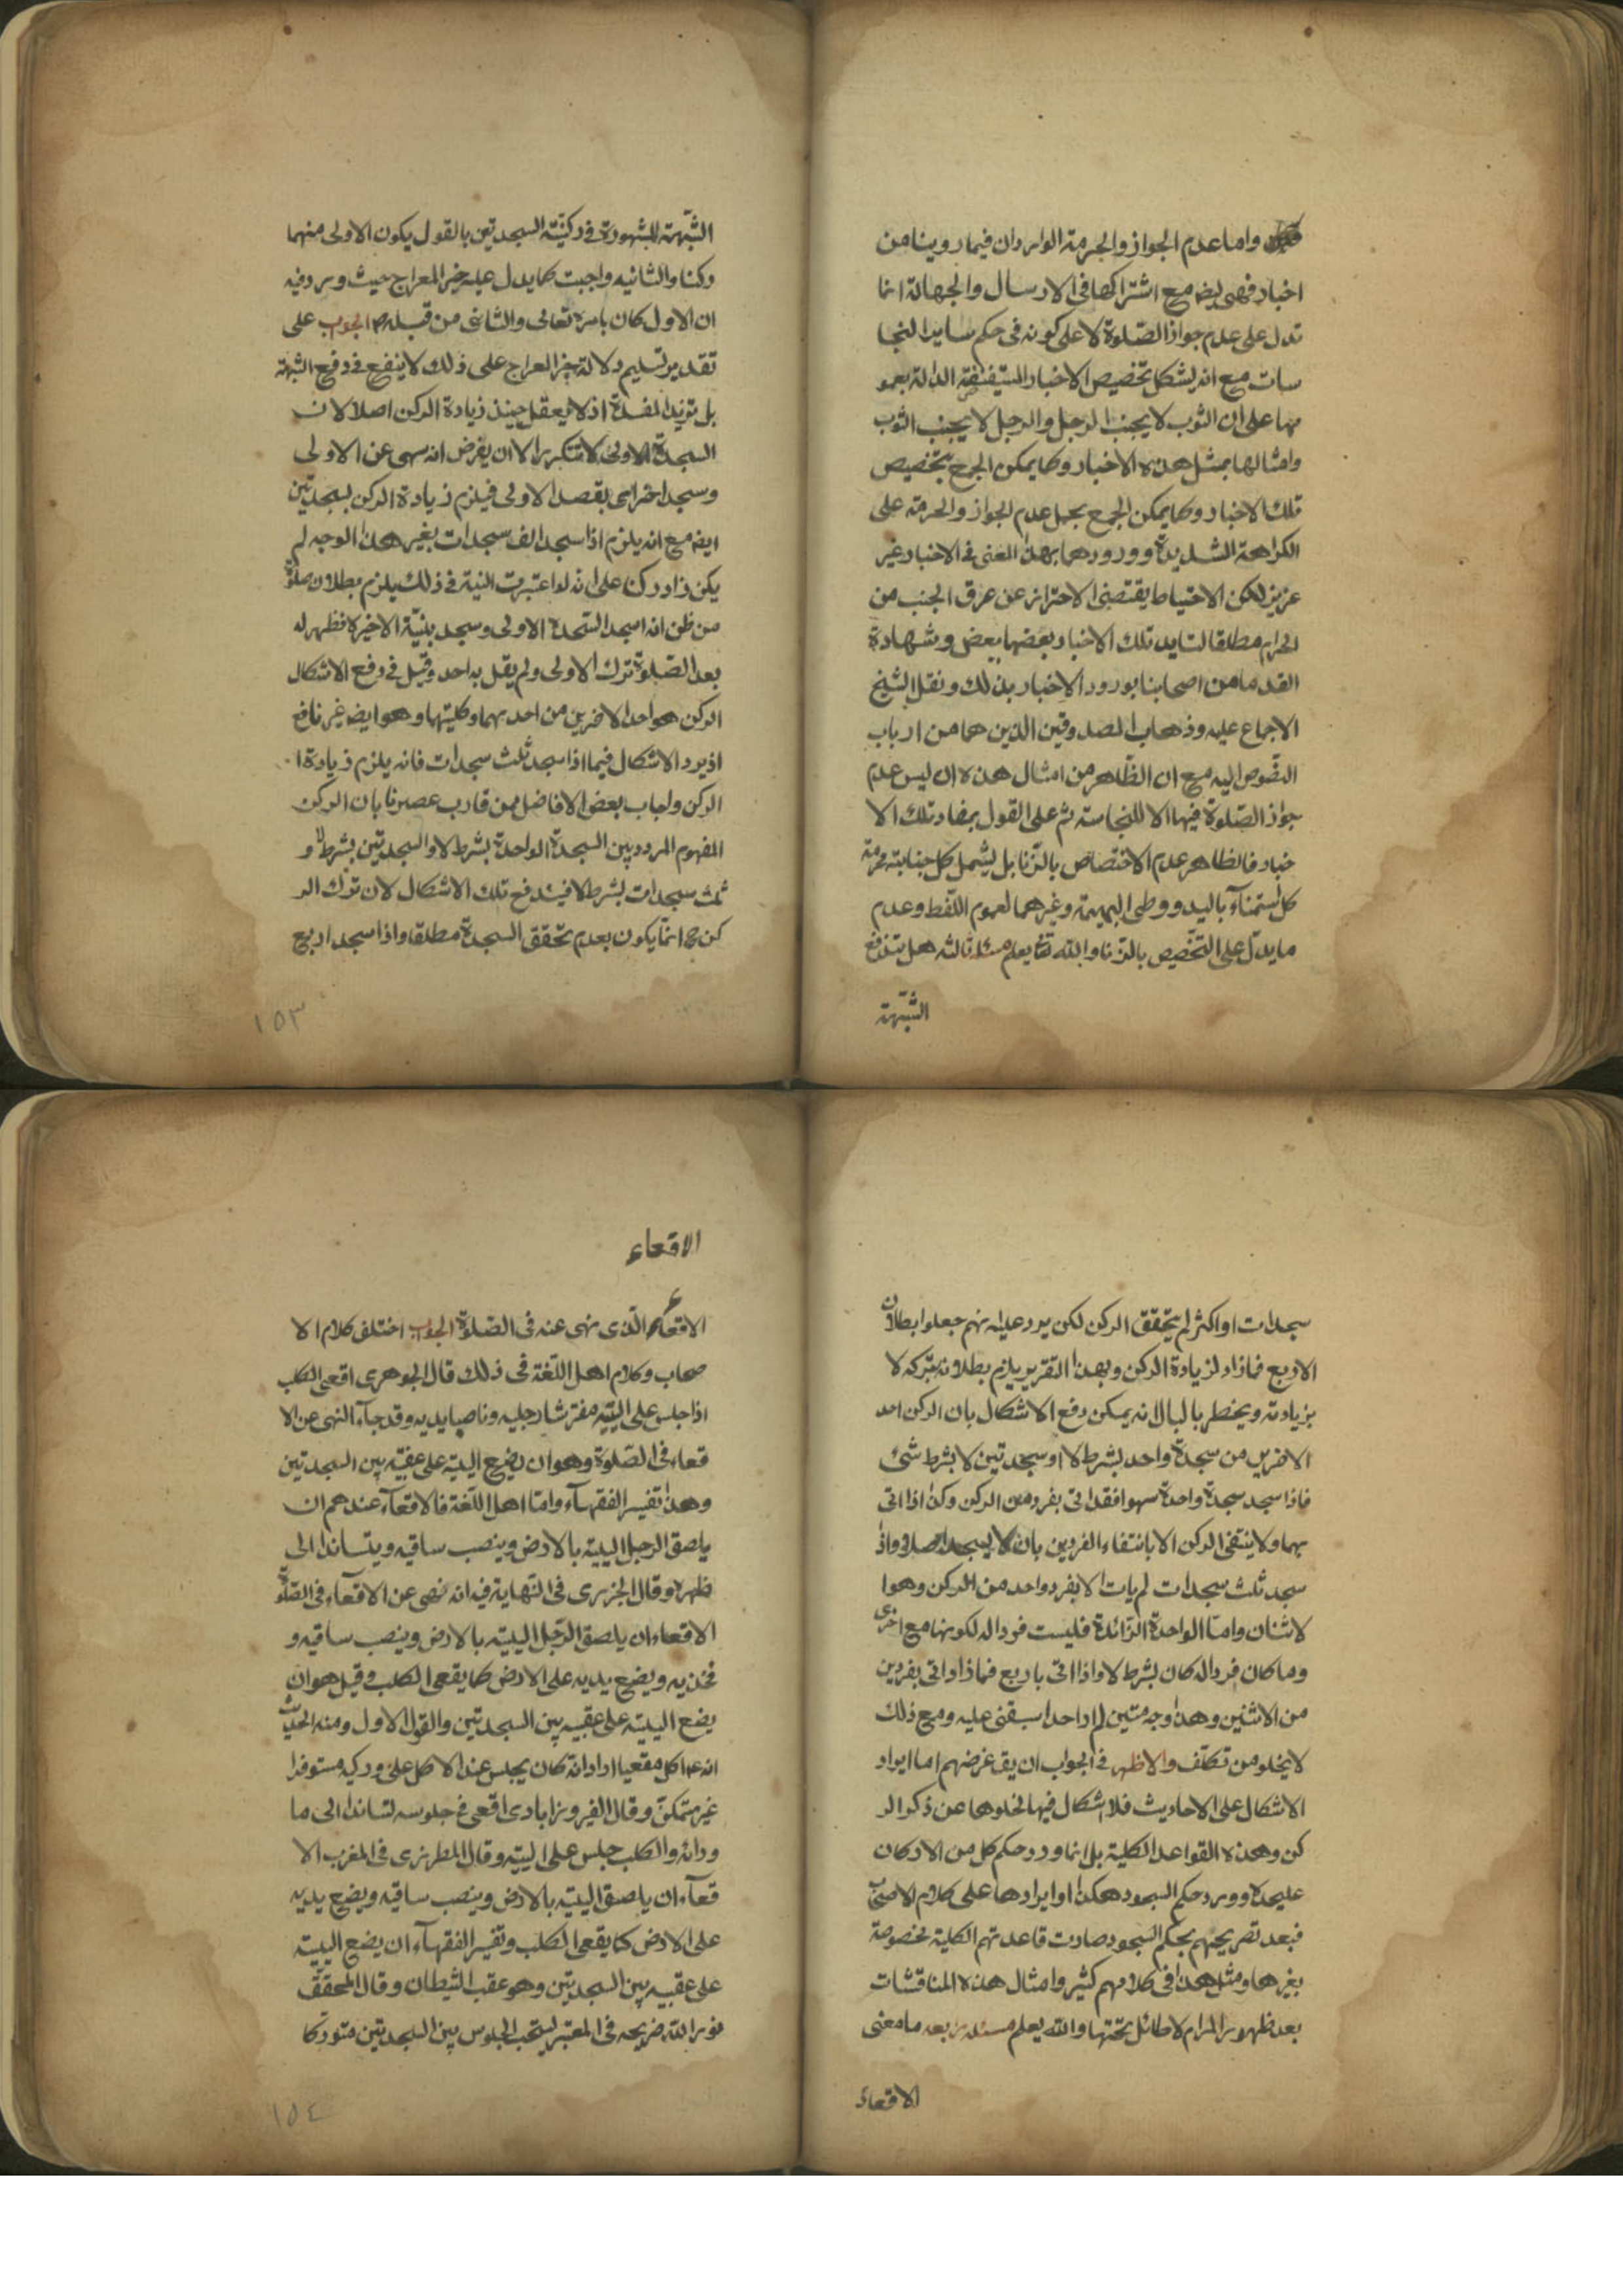 واما عدم الجواز والحرمة الواردان فيما روينا من
اخبار فهى ايضا مع اشتراكها فى الارسال والجهالة انما
تدل على عدم جواز الصّلوة لا على كونه فى حكم ساير النجا
سات مع انه يشكل تخصيص الاخبار المستفيضة الدالة بعمو
مها على ان الثوب لا يجنب الرجل والرجل لا يجنب الثوب
وامثالها بمثل هذه الاخبار وكما يمكن الجمع بتخصيص
تلك الاخبار وكما يمكن الجمع بحمل عدم الجواز والحرمة على
الكراهة الشديدة وورودهما بهذا المعنى فى الاخبار غير
عزيز لكن الاحتياط يقتضى الاحتراز عن عرق الجنب من
الحرام مطلقا لتايد تلك الاخبار بعضها ببعض وشهادة
القدما من اصحابنا بورود الاخبار بذلك ونقل الشيخ
الاجماع عليه وذهاب الصدوقين الذين هما من ارباب
النّصوص اليه مع ان الظّاهر من امثال هذه ان ليس عدم
جواز الصّلوة فيها الا للنجاسة ثم على القول بمفاد تلك الا
خبار فالظاهر عدم الاختصاص بالزّنا بل يشمل كل جنابة محرمة
كالاستمنآء باليد ووطى البهيمة وغيرهما لعموم اللّفظ وعدم
ما يدلّ على التّخصيص بالزّنا والله تعا يعلم مسئله ثالثه هل تندفع
الشّبهة
الشّبهة المشهورة فى ركنيّة السجدتين بالقول يكون الاولى منهما
ركنا والثانيه واجبت كما يدل عليه خبر المعراج حيث ورد فيه
ان الاول كان بامره تعالى والثانى من قبله ص الجوب على
تقدير تسليم دلالة خبر المعراج على ذلك لا ينفع فى دفع الشبهة
بل تزيد المفسدة اذ لا يعقل حينئذ زيادة الركن اصلا لان
السجدة الاولى لا تتكرر الا ان يفرض انه سهى عن الاولى
وسجد اخرى بقصد الاولى فيلزم زيادة الركن بسجدتين
ايضه مع انه يلزم اذا سجد الف سجدات بغير هذا الوجه لم
يكن زاد ركنا على انه لو اعتبرت النية فى ذلك يلزم بطلان صلوة
من ظن انه اسجد السّجدة الاولى وسجد بنيّة الاخيرة فظهر له
بعد الصّلوة ترك الاولى ولم يقل به احد وقيل فى دفع الاشكال
الركن هو احد الامرين من احدهما وكليتهما وهو ايضه غير نافع
اذ يرد الاشكال فيما اذا سجد ثلث سجدات فانه يلزم زيادة ا
الركن واجاب بعض الافاضل ممن قارب عصرنا بان الركن
المفهوم المردد بين السجدة الواحدة بشرط لا والسجدتين بشرط لا و
ثلث سجدات بشرط لا فيندفع تلك الاشكال لان ترك الر
كن ح انما يكون بعدم تحقق السجدة مطلقا واذا سجد اربع
١٥٣
سجدات او اكثر لم يتحقق الركن لكن يرد عليه انهم جعلوا بطلان
الاربع فمازاد لزيادة الركن وبهذا التقرير يلزم بطلانه بتركه لا
بزيادته ويخطر بالبال انه يمكن دفع الاشكال بان الركن احد
الامرين من سجدة واحد بشرط لا او سجدتين لا بشرط شئ
فاذا سجد سجدة واحدة سهوا فقد اتى بفرد من الركن وكذا اذا اتى
بهما ولا ينتفى الركن الا بانتفاء الفردين بان لا يسجد اصلا واذا
سجد ثلث سجدات لم يات الا بفرد واحد من الركن وهو ا
لاثنان وامّا الواحدة الزّائدة فليست فردا له لكونها مع اخرى
وما كان فردا له كان بشرط لا واذا اتى باربع فما زاد اتى بفردين
من الاثنين وهذا وجه متين لم ار احدا سبقنى عليه ومع ذلك
لا يخلو من تكلّف والاظهر فى الجواب ان يقہ غرضهم اما ايراد
الاشكال على الاحاديث فلا اشكال فيها لخلوها عن ذكر الر
كن وهذه القواعد الكلية بل انما ورد حكم كل من الاركان
عليحدة وورد حكم السجود هكذا او ايرادها على كلام الاصحاب
فبعد تصريحهم بحكم السجود صارت قاعدتهم الكلية مخصوصة
بغيرها ومثل هذا فى كلامهم كثير وامثال هذه المناقشات
بعد ظهور المرام لا طائل تحتها والله يعلم مسئله رابعه ما معنى
الاقعاء
الاقعاء
الاقعاء الّذى نهى عنه فى الصّلوة الجوب اختلف كلام الا
صحاب وكلام اهل اللّغة فى ذلك قال الجوهرى اقعى الكلب
اذا جلس على اليتيه مفترشا رجليه وناصبا يديه وقد جآء النهى عن الا
قعاء فى الصّلوة وهو ان يضع اليتيه على عقبيه بين السجدتين
وهذا تفسير الفقهآء وامّا اهل اللّغة فالاقعآء عندهم ان
يلصق الرجل اليتيه بالارض وينصب ساقيه ويتساند الى
ظهره وقال الجزرى فى النّهاية فيه انه نهى عن الاقعآء فى الصّلوة
الاقعاء ان يلصق الرّجل اليتيه بالارض وينصب ساقيه و
فخذيه ويضع يديه على الارض كما يقعى الكلب وقيل هو ان
يضع اليتيه على عقبيه بين السجدتين والقول الاول ومنه الحديث
انه ع اكل مقعيا اراد انه كان يجلس عند الاكل على وركيه مستوفزا
غير متمكّن وقال الفيروزابادى اقعى فى جلوسه تساند الى ما
ورائه والكلب جلس على اليتيه وقال المطرزى فى المغرب الا
قعآء ان يلصق اليتيه بالارض وينصب ساقيه ويضع يديه
على الارض كما يقعى الكلب وتفسير الفقهآء ان يضع اليتيه
على عقبيه بين السجدتين وهو عقب الشيطان وقال المحقّق
نور الله ضريحه فى المعتبر يستحب الجلوس بين السجدتين متوركا
١٥٤